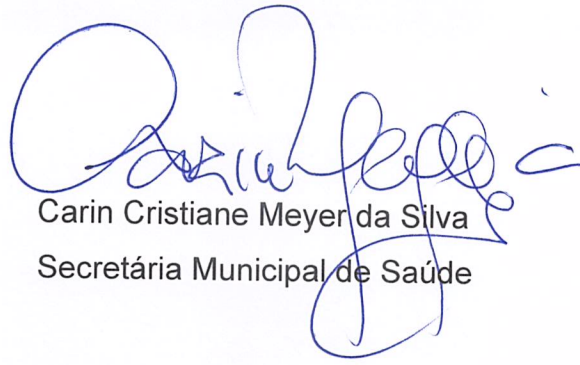 Carin Cristiane Meyer da Silva
Secretária Municipal de Saúde